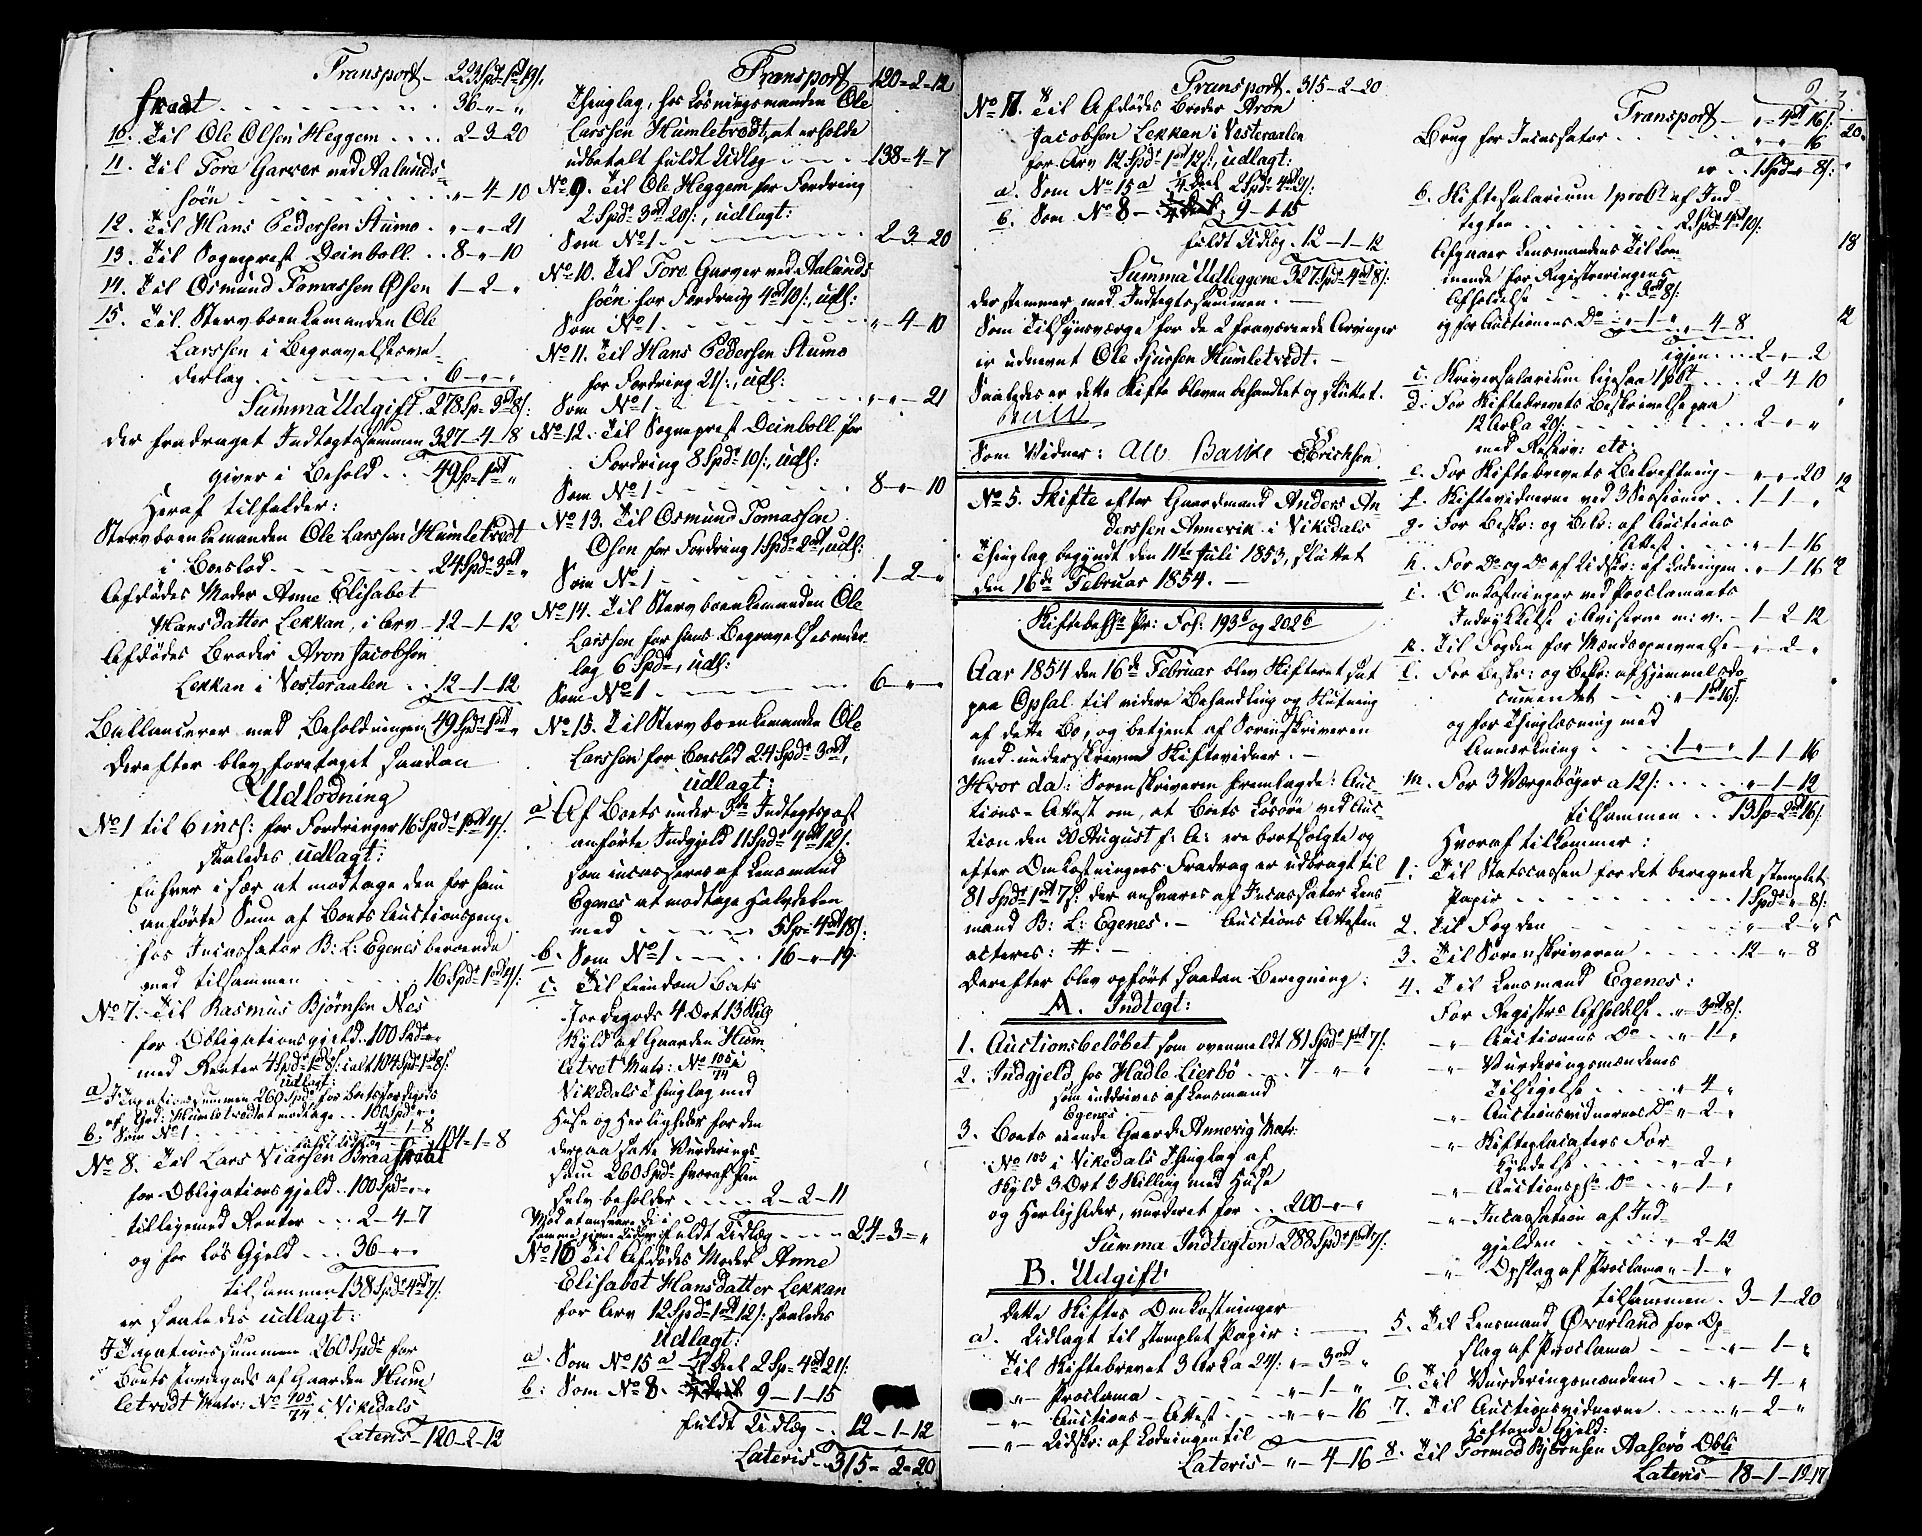 Transport – 223 Spd 1 ort 19 s.
skaat . . . . . . . . . 36 – „ – „
10. Til Ole Olsen Heggem . . . . 2–3–20
11. Til Tore Garver ved Aalunds-
höen . . . . . . . „ – 4 – 10
12. Til Hans Pedersen Stumo . „ – „ – 21
13. Til Sogneprest Deinboll . . 8 – „ – 10
14. Til Osmund Tomassen Ösen 1 – 2 – „
15. Til Stervboenkemanden Ole
Larssen i Begravelsesve-
derlag . . . . . . . 6 – „ – „
Summa Udgift. 278 Sp – 3 ort 8 s:
der fradraget Indtegtssummen 327 – 4 – 8
giver i Behold . . 49 Sp – 1 ort „
Heraf tilfalder:
Stervboenkemanden Ole Larssen Humletvedt
i Boeslod . . . . . . 24 Spd 3 ort „
Afdödes Moder Anne Elisabet
Hansdatter Lekkan, i Arv – 12 – 1 – 12
Afdödes Broder Aron Jacobsen
Lekkan i Vesteraalen . . 12 – 1 – 12
Ballancerer med Beholdningen 49 Spd 1 ort „
Derefter blev foretaget saadan
Udlodning
No 1 til 6 incl: for Fordringer 16 Spd 1 ort 4 s.
saaledes udlagt:
Enhver især at modtage den for ham
anförte Sum af Boets Auctionspenge
hos Incassator B: L: Egenes beroende
med tilsammen . . . . . 16 Spd 1 ort 4 s:
No 7. Til Rasmus Bjørnsen Nes
for Obligationsgjeld . 100 Spd „ „
med Renter 4 Spd 1 ort 8 s: ialt 104 Spd 1 ort 8 s:
udlagt:
a. I Taxationssummen 260 Spd for Boets Jordegods
af Grd: Humletvedt at modtage . . 100 Spd „ „
b. Som No 1 . . . . . . . 4 – 1 – 8
fuldt Udlæg 104 – 1 – 8
No 8. Til Lars Viarsen Braatveit
for Obligationsgjeld . . 100 Spd „ „
tilligemed Renter . . . 2 – 4 – 7
og for lös Gjeld . . . 36 – „ – „
tilsammen 138 Spd 4 ort 7 s.
er saaledes udlagt:
I Taxationssummen 260 Spd for
Boets Jordegods af Gaarden Hum-
letvedt Matr: No 105/74 i Vikedals
Lateris – 120 – 2 – 12
Transport – 120 – 2 – 12
Thinglag, hos Løsningsmanden Ole
Larssen Humletvedt, at erholde
udbetalt fuldt Udlæg . . . . . 138 – 4 – 7
No 9. Til Ole Heggem for Fordring
2 Spd 3 ort 20 s:, udlagt:
Som No 1 . . . . . . . . 2 – 3 – 20
No 10. Til Tore Garver ved Aalunds-
höen for Fordring 4 ort 10 s:, udl:
Som No 1 . . . . . . . . „ – 4 – 10
No 11. Til Hans Pedersen Stumo
for Fordring 21 s:, udl:
Som No 1 . . . . . . . . „ – „ – 21
No 12. Til Sogneprest Deinboll for
Fordring 8 Spd 10 s:, udl:
Som No 1 . . . . . . . . 8 – „ – 10
No 13. Til Osmund Tomassen
Ösen for Fordring 1 Spd 2 ort, udl:
Som No 1 . . . . . . . . 1 – 2 – „
No 14. Til Stervboenkemanden Ole
Larssen for hans Begravelsesveder-
lag 6 Spd, udl:
Som No 1 . . . . . . . . 6 – „ – „
No 15. Til Stervboenkemanden Ole
Larssen for Boeslod 24 Spd 3 ort,
udlagt:
a. Af Boets under 3die Indtegtspost
anförte Indgjeld 11 Spd 4 ort 12 s:
som incasseres af Lensmand
Egenes at modtage Halvdelen
med . . . . . . 5 Sp – 4 ort 18 s:
b. Som No 1 . . . . 16 – „ – 19
c. Til Eiendom Boets
Jordegods 4 Ort 13 Skil
Skyld af Gaarden Hum-
letvet Matr: No 105/74 i
Vikedals Thinglag med
Huse og Herligheder for den
derpaa satte Vurderings-
Sum 260 Spd hvoraf han
selv beholder . . . . . 2 – 2 – 11
fuldt Udlæg . . . . 24 – 3 – „
No 16 Til Afdödes Moder Anne
Elisabet Hansdatter Lekkan
for Arv 12 Spd 1 ort 12 s: saaledes
Udlagt:
a. Som No 15 a 1/4 Deel 2 Sp – 4 ort 21 s:
b: Som No 8. 9 – 1 – 15
fuldt Udlæg . . 12 – 1 – 12
Lateris . 315 – 2 – 20
Transport . 315 – 2 – 20
No 17. Til Afdödes Broder Aron
Jacobsen Lekkan i Vesteraalen
for Arv 12 Spd 1 ort 12 s:, udlagt:
a. Som No 15 a 1/4 Deel 2 Spd 4 ort 21 s.
b. Som No 8 – 9 – 1 – 15
fuldt Udlæg . 12 – 1 – 12
Summa Udleggene 327 Spd 4 ort 8 s:
der stemmer med Indtegtssummen. –
Som Tilsynsværge for de 2 fraværende Arvinger
er udnevnt Ole Sjursen Humletvedt. –
Saaledes er dette Skifte bleven behandlet og sluttet.
Som Vidner: Alb Balke E Erichsen
No 5. Skifte efter Gaardmand Anders An-
derssen Annevik i Vikedals
Thinglag begyndt den 11te Juli 1853, sluttet
den 16de Februar 1854. –
Skiftebeh: Pr: Fol: 193 b og 202 b
Aar 1854 den 16de Februar blev Skifteret sat
paa Opsal til videre Behandling og Slutning
af dette Bo, og betjent af Sorenskriveren
med underskrevne Skiftevidner. –
Hvor da: Sorenskriveren fremlagde: Auc-
tions-Attest om, at Boets Lösöre ved Auc-
tion den 30 August f: A: ere bortsolgte og
efter Omkostningers Fradrag er udbragt til
81 Spd 1 ort 7 s: der ansvares af Incassator Lens-
mand B: L: Egenes. – Auctions Attesten
acteres: #: –
Derefter blev opfört saadan Beregning:
A. Indtegt:
1. Auctionsbelöbet som ovenmeldt 81 Spd 1 ort 7 s:
2. Indgjeld hos Hadle Liesbö . . . . 7 „ „
som inddrives af Lensmand
Egenes. –
3. Boets eiende Gaard Annevig Matr:
No 103 i Vikedals Thinglag af
Skyld 3 Ort 3 Skilling med Huse
og Herligheder, vurderet for . . 200 – „ – „
Summa Indtegten 288 Spd 1 ort 7 s:
B. Udgift:
Dette Skiftes Omkostninger
a. Udlagt til stemplet Papir:
Til Skiftebrevet 3 Ark a 24 s: „ – 3 ort „
„ – Proclama . . . . . . . „ – 1 – „
„ – Auctions – Attest . . . . „ – „ – 16
„ – Udskr: af Lodningen til
Lateris – „ – 4 – 16
2
Transport – „ – 4 ort 16 s:
Brug for Incassator . . . . . . „ – „ – 16
er . . 1 Spd „ 8 s:
b. Skiftesalarium 1 proCt af Ind-
tegten . . . . . . 2 Spd 4 ort 10 s:
Afgaaer Lensmandens Tilkom-
mende for Registreringens
Afholdelse . . . . „ – 3 ort 8 s:
og for Auctionens Do . . „ – 1 „ „ – 4 – 8
igjen . . . 2 – „ – 2
c. Skriversalarium ligesaa 1 pCt . . . 2 – 4 – 10
d. For Skiftebrevets Beskrivelse paa
12 Ark a 20 s: . . . . . . . 2 – „ – „
med Reserv: etc:
e. For Skiftebrevets Bekreftning – „ – „ – 20
f. Skiftevidnerne ved 3 Sessioner . . 1 – 1 – „
g. For Beskr: og Bekr: af Auctions
Attest . . . . . „ – 1 – 16
h. For Do og Do af Udskr: af Lodningen . „ – 1 – 16
i. Omkostninger ved Proclamaets
Indrykkelse i Aviserne m: v: – 1 – 2 – 12
k. Til Fogden for Mændsopnevnelse „ – 2 „
l. For Beskr: og Bekr: af Hjemmelsdo-
cumentet . . . „ – 1 ort 16 s:
og for Thinglæsning med
Anmærkning . . . . 1 – „ – „ 1 – 1 – 16
m. For 3 Værgebøger a 12 s: . . . . . „ – 1 – 12
tilsammen . . 13 Sp – 2 ort 16 s:
Hvoraf tilkommer:
1. Til Statscassen for det beregnede stemplet
Papir . . . . . . . . . 1 Spd „ 8 s:
2. Til Fogden . . . . . . . . „ – 2 – „
3. Til Sorenskriveren . . . . . . 12 – „ – 8
4. Til Lensmand Egenes:
For Registrs Afholdelse . . „ – 3 ort 8 s:
„ – Auctionens Do . . „ – 1 – „
„ – Vurderingsmændenes
Tilsigelse . . . . . „ – 4 – „
„ – Auctionsvidnernes Do „ – 2 – „
„ – Skifteplacaters For-
kyndelse . . . . . „ – 2 – „
„ – Auctionspl: Do . . „ – 1 – „
„ – Incassation af Ind-
gjelden . . . . . „ – 2 – 12
„ – Opslag af Proclama „ – 1 – „
tilsammen . 3 – 1 – 20
5. Til Lensmand Överland for Op-
slag af Proclama . . . . . „ – 1 – „
6. Til Vurderingsmændene . . . „ – 4 – „
7. Til Auctionsvidnerne . . . . . „ – 2 – „
Heftende Gjeld:
8. Til Tormod Björnsen Aaserö Obli-
Lateris – 18 – 1 – 12